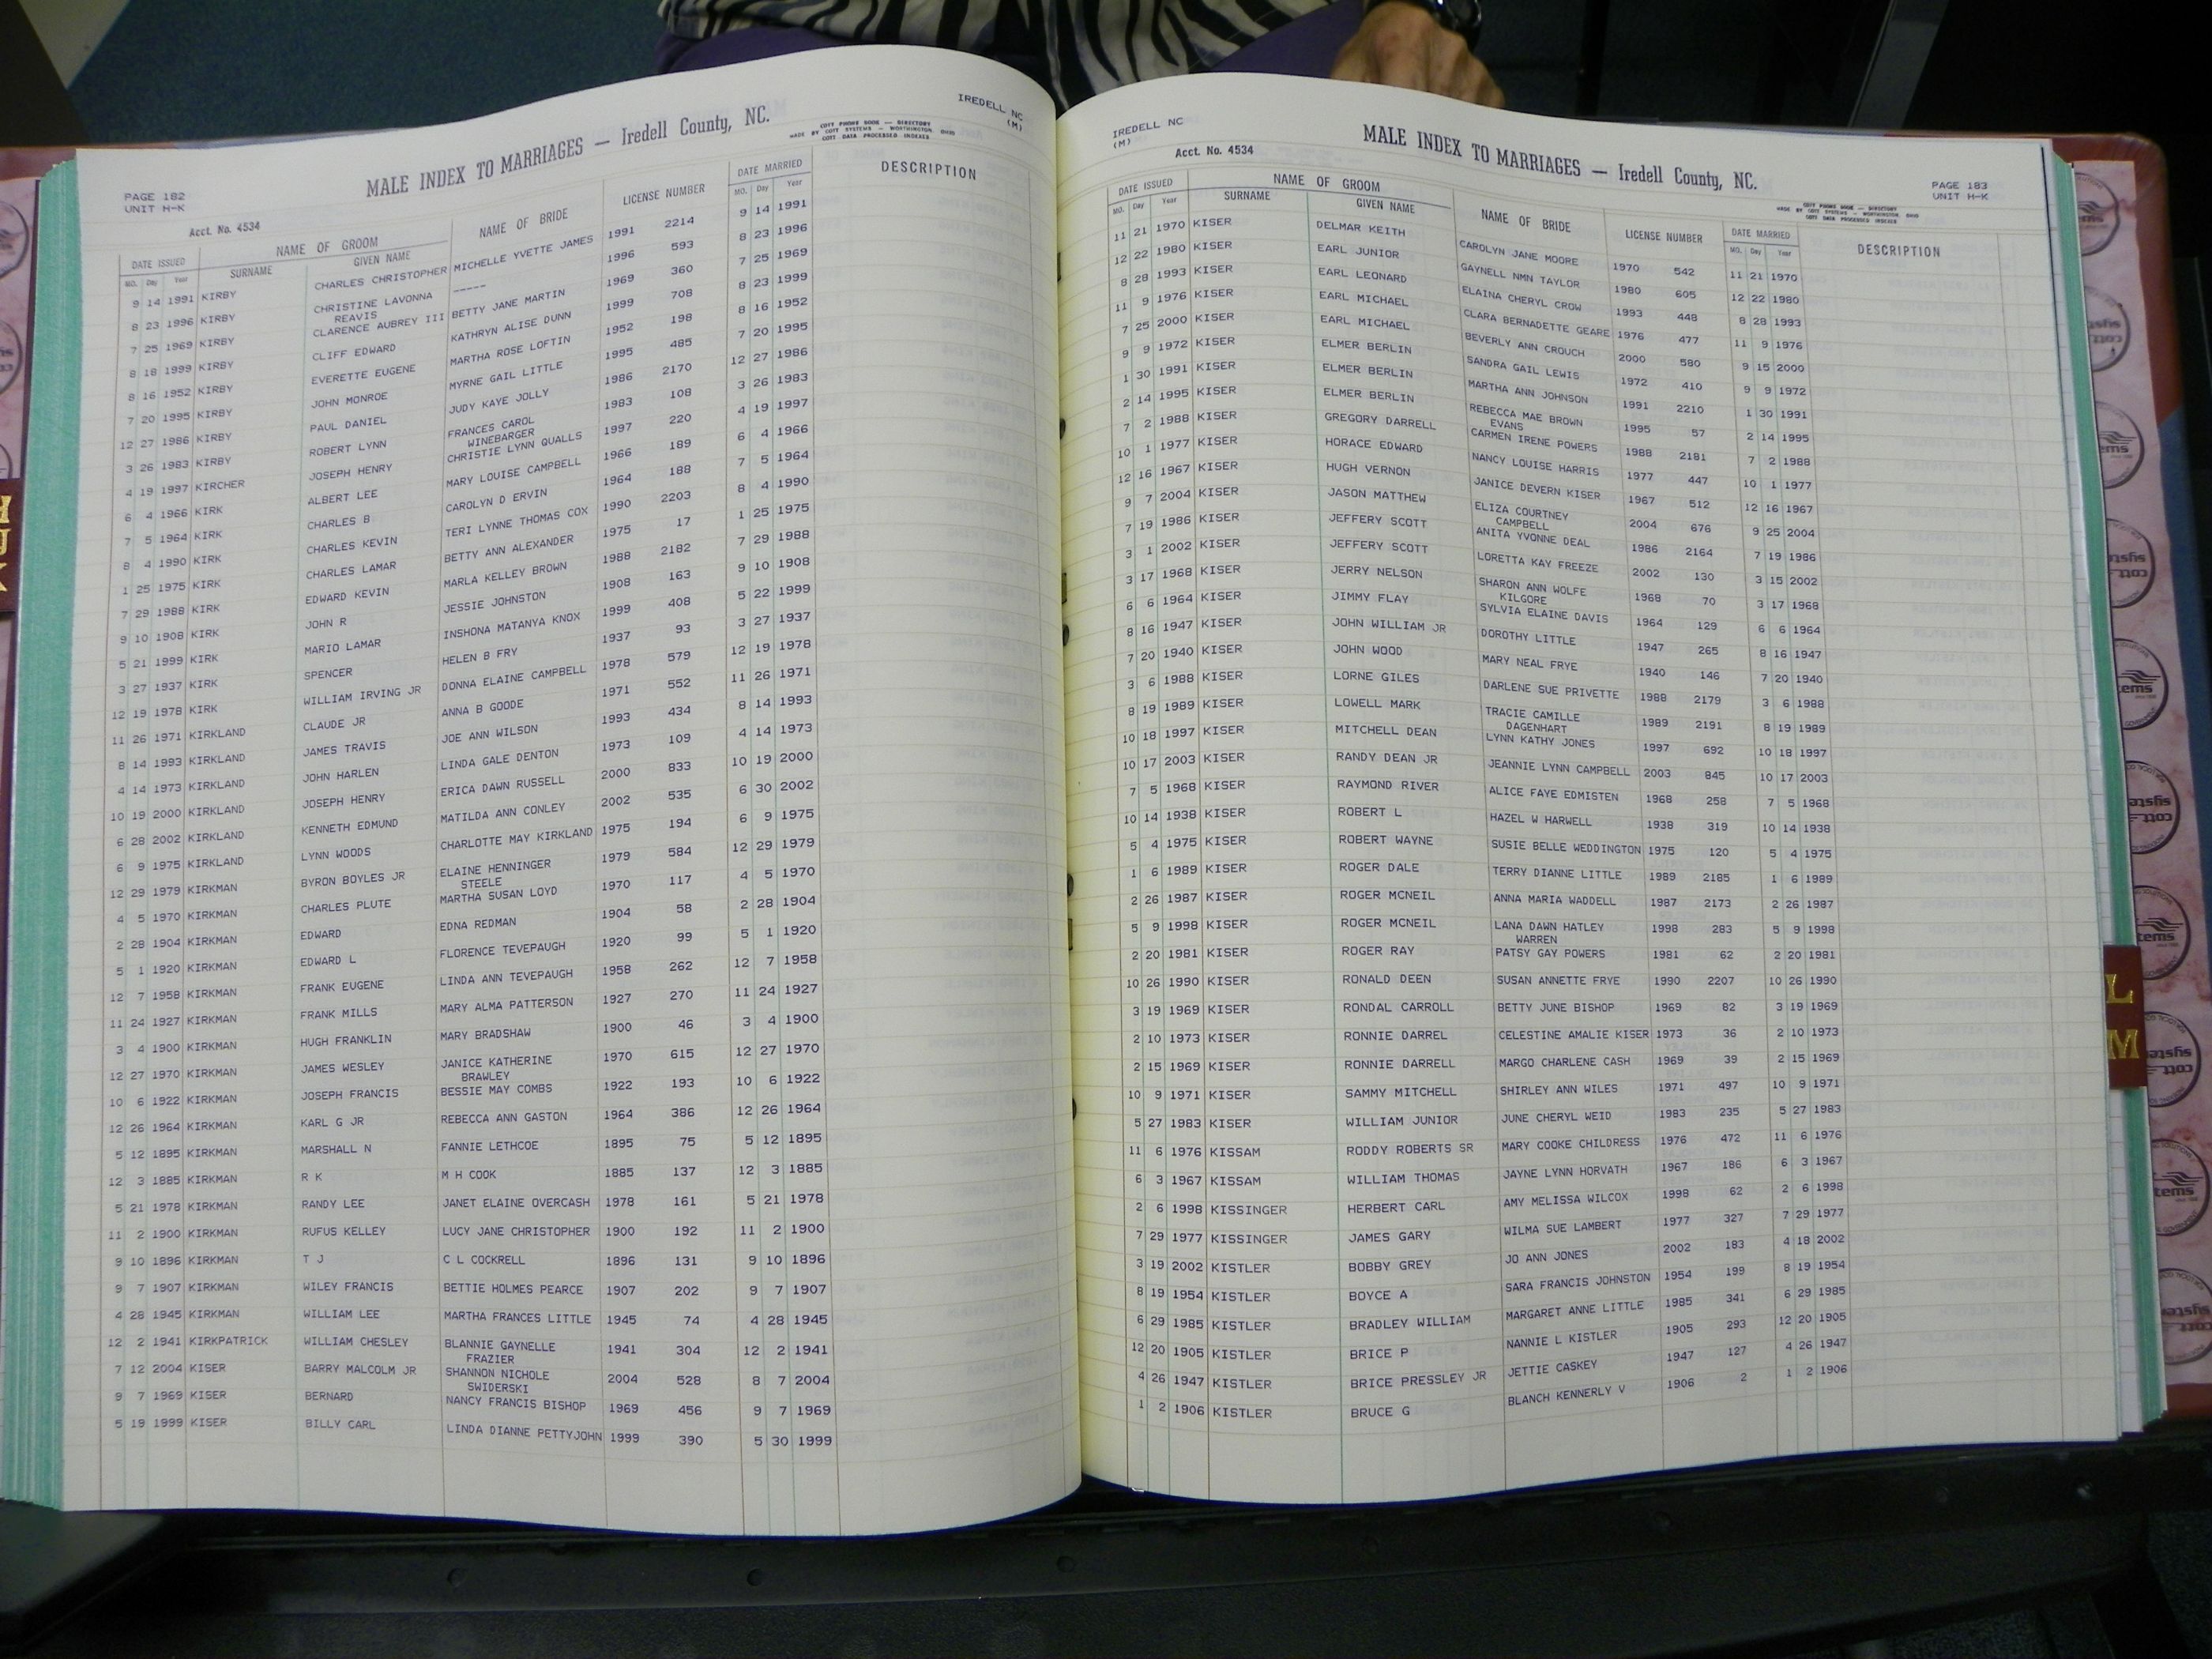 IREDELL NC
(M)
MALE INDEX TO MARRIAGES — Iredell County, NC.
COTT PHONE BOOK — DIRECTORY
MADE BY COTT SYSTEMS — WORTHINGTON, OHIO
COTT DATA PROCESSED INDEXES
PAGE 182
UNIT H-K
Acct. No. 4534
DATE ISSUED NAME OF GROOM NAME OF BRIDE LICENSE NUMBER DATE MARRIED DESCRIPTION
MO. Day Year SURNAME GIVEN NAME MO. Day Year
9 14 1991 KIRBY CHARLES CHRISTOPHER MICHELLE YVETTE JAMES 1991 2214 9 14 1991
8 23 1996 KIRBY CHRISTINE LAVONNA ----- 1996 593 8 23 1996
REAVIS
7 25 1969 KIRBY CLARENCE AUBREY III BETTY JANE MARTIN 1969 360 7 25 1969
8 18 1999 KIRBY CLIFF EDWARD KATHRYN ALISE DUNN 1999 708 8 23 1999
8 16 1952 KIRBY EVERETTE EUGENE MARTHA ROSE LOFTIN 1952 198 8 16 1952
7 20 1995 KIRBY JOHN MONROE MYRNE GAIL LITTLE 1995 485 7 20 1995
12 27 1986 KIRBY PAUL DANIEL JUDY KAYE JOLLY 1986 2170 12 27 1986
3 26 1983 KIRBY ROBERT LYNN FRANCES CAROL 1983 108 3 26 1983
WINEBARGER
4 19 1997 KIRCHER JOSEPH HENRY CHRISTIE LYNN QUALLS 1997 220 4 19 1997
6 4 1966 KIRK ALBERT LEE MARY LOUISE CAMPBELL 1966 189 6 4 1966
7 5 1964 KIRK CHARLES B CAROLYN D ERVIN 1964 188 7 5 1964
8 4 1990 KIRK CHARLES KEVIN TERI LYNNE THOMAS COX 1990 2203 8 4 1990
1 25 1975 KIRK CHARLES LAMAR BETTY ANN ALEXANDER 1975 17 1 25 1975
7 29 1988 KIRK EDWARD KEVIN MARLA KELLEY BROWN 1988 2182 7 29 1988
9 10 1908 KIRK JOHN R JESSIE JOHNSTON 1908 163 9 10 1908
5 21 1999 KIRK MARIO LAMAR INSHONA MATANYA KNOX 1999 408 5 22 1999
3 27 1937 KIRK SPENCER HELEN B FRY 1937 93 3 27 1937
12 19 1978 KIRK WILLIAM IRVING JR DONNA ELAINE CAMPBELL 1978 579 12 19 1978
11 26 1971 KIRKLAND CLAUDE JR ANNA B GOODE 1971 552 11 26 1971
8 14 1993 KIRKLAND JAMES TRAVIS JOE ANN WILSON 1993 434 8 14 1993
4 14 1973 KIRKLAND JOHN HARLEN LINDA GALE DENTON 1973 109 4 14 1973
10 19 2000 KIRKLAND JOSEPH HENRY ERICA DAWN RUSSELL 2000 833 10 19 2000
6 28 2002 KIRKLAND KENNETH EDMUND MATILDA ANN CONLEY 2002 535 6 30 2002
6 9 1975 KIRKLAND LYNN WOODS CHARLOTTE MAY KIRKLAND 1975 194 6 9 1975
12 29 1979 KIRKMAN BYRON BOYLES JR ELAINE HENNINGER 1979 584 12 29 1979
STEELE
4 5 1970 KIRKMAN CHARLES PLUTE MARTHA SUSAN LOYD 1970 117 4 5 1970
2 28 1904 KIRKMAN EDWARD EDNA REDMAN 1904 58 2 28 1904
5 1 1920 KIRKMAN EDWARD L FLORENCE TEVEPAUGH 1920 99 5 1 1920
12 7 1958 KIRKMAN FRANK EUGENE LINDA ANN TEVEPAUGH 1958 262 12 7 1958
11 24 1927 KIRKMAN FRANK MILLS MARY ALMA PATTERSON 1927 270 11 24 1927
3 4 1900 KIRKMAN HUGH FRANKLIN MARY BRADSHAW 1900 46 3 4 1900
12 27 1970 KIRKMAN JAMES WESLEY JANICE KATHERINE 1970 615 12 27 1970
BRAWLEY
10 6 1922 KIRKMAN JOSEPH FRANCIS BESSIE MAY COMBS 1922 193 10 6 1922
12 26 1964 KIRKMAN KARL G JR REBECCA ANN GASTON 1964 386 12 26 1964
5 12 1895 KIRKMAN MARSHALL N FANNIE LETHCOE 1895 75 5 12 1895
12 3 1885 KIRKMAN R K M H COOK 1885 137 12 3 1885
5 21 1978 KIRKMAN RANDY LEE JANET ELAINE OVERCASH 1978 161 5 21 1978
11 2 1900 KIRKMAN RUFUS KELLEY LUCY JANE CHRISTOPHER 1900 192 11 2 1900
9 10 1896 KIRKMAN T J C L COCKRELL 1896 131 9 10 1896
9 7 1907 KIRKMAN WILEY FRANCIS BETTIE HOLMES PEARCE 1907 202 9 7 1907
4 28 1945 KIRKMAN WILLIAM LEE MARTHA FRANCES LITTLE 1945 74 4 28 1945
12 2 1941 KIRKPATRICK WILLIAM CHESLEY BLANNIE GAYNELLE 1941 304 12 2 1941
FRAZIER
7 12 2004 KISER BARRY MALCOLM JR SHANNON NICHOLE 2004 528 8 7 2004
SWIDERSKI
9 7 1969 KISER BERNARD NANCY FRANCIS BISHOP 1969 456 9 7 1969
5 19 1999 KISER BILLY CARL LINDA DIANNE PETTYJOHN 1999 390 5 30 1999
IREDELL NC
(M)
Acct. No. 4534
MALE INDEX TO MARRIAGES — Iredell County, NC.
PAGE 183
UNIT H-K
COTT PHONE BOOK — DIRECTORY
MADE BY COTT SYSTEMS — WORTHINGTON, OHIO
COTT DATA PROCESSED INDEXES
DATE ISSUED NAME OF GROOM NAME OF BRIDE LICENSE NUMBER DATE MARRIED DESCRIPTION
MO. Day Year SURNAME GIVEN NAME MO. Day Year
11 21 1970 KISER DELMAR KEITH CAROLYN JANE MOORE 1970 542 11 21 1970
12 22 1980 KISER EARL JUNIOR GAYNELL NMN TAYLOR 1980 605 12 22 1980
8 28 1993 KISER EARL LEONARD ELAINA CHERYL CROW 1993 448 8 28 1993
11 9 1976 KISER EARL MICHAEL CLARA BERNADETTE GEARE 1976 477 11 9 1976
7 25 2000 KISER EARL MICHAEL BEVERLY ANN CROUCH 2000 580 9 15 2000
9 9 1972 KISER ELMER BERLIN SANDRA GAIL LEWIS 1972 410 9 9 1972
1 30 1991 KISER ELMER BERLIN MARTHA ANN JOHNSON 1991 2210 1 30 1991
2 14 1995 KISER ELMER BERLIN REBECCA MAE BROWN 1995 57 2 14 1995
EVANS
7 2 1988 KISER GREGORY DARRELL CARMEN IRENE POWERS 1988 2181 7 2 1988
10 1 1977 KISER HORACE EDWARD NANCY LOUISE HARRIS 1977 447 10 1 1977
12 16 1967 KISER HUGH VERNON JANICE DEVERN KISER 1967 512 12 16 1967
9 7 2004 KISER JASON MATTHEW ELIZA COURTNEY 2004 676 9 25 2004
CAMPBELL
7 19 1986 KISER JEFFERY SCOTT ANITA YVONNE DEAL 1986 2164 7 19 1986
3 1 2002 KISER JEFFERY SCOTT LORETTA KAY FREEZE 2002 130 3 15 2002
3 17 1968 KISER JERRY NELSON SHARON ANN WOLFE 1968 70 3 17 1968
KILGORE
6 6 1964 KISER JIMMY FLAY SYLVIA ELAINE DAVIS 1964 129 6 6 1964
8 16 1947 KISER JOHN WILLIAM JR DOROTHY LITTLE 1947 265 8 16 1947
7 20 1940 KISER JOHN WOOD MARY NEAL FRYE 1940 146 7 20 1940
3 6 1988 KISER LORNE GILES DARLENE SUE PRIVETTE 1988 2179 3 6 1988
8 19 1989 KISER LOWELL MARK TRACIE CAMILLE 1989 2191 8 19 1989
DAGENHART
10 18 1997 KISER MITCHELL DEAN LYNN KATHY JONES 1997 692 10 18 1997
10 17 2003 KISER RANDY DEAN JR JEANNIE LYNN CAMPBELL 2003 845 10 17 2003
7 5 1968 KISER RAYMOND RIVER ALICE FAYE EDMISTEN 1968 258 7 5 1968
10 14 1938 KISER ROBERT L HAZEL W HARWELL 1938 319 10 14 1938
5 4 1975 KISER ROBERT WAYNE SUSIE BELLE WEDDINGTON 1975 120 5 4 1975
1 6 1989 KISER ROGER DALE TERRY DIANNE LITTLE 1989 2185 1 6 1989
2 26 1987 KISER ROGER MCNEIL ANNA MARIA WADDELL 1987 2173 2 26 1987
5 9 1998 KISER ROGER MCNEIL LANA DAWN HATLEY 1998 283 5 9 1998
WARREN
2 20 1981 KISER ROGER RAY PATSY GAY POWERS 1981 62 2 20 1981
10 26 1990 KISER RONALD DEEN SUSAN ANNETTE FRYE 1990 2207 10 26 1990
3 19 1969 KISER RONDAL CARROLL BETTY JUNE BISHOP 1969 82 3 19 1969
2 10 1973 KISER RONNIE DARREL CELESTINE AMALIE KISER 1973 36 2 10 1973
2 15 1969 KISER RONNIE DARRELL MARGO CHARLENE CASH 1969 39 2 15 1969
10 9 1971 KISER SAMMY MITCHELL SHIRLEY ANN WILES 1971 497 10 9 1971
5 27 1983 KISER WILLIAM JUNIOR JUNE CHERYL WEID 1983 235 5 27 1983
11 6 1976 KISSAM RODDY ROBERTS SR MARY COOKE CHILDRESS 1976 472 11 6 1976
6 3 1967 KISSAM WILLIAM THOMAS JAYNE LYNN HORVATH 1967 186 6 3 1967
2 6 1998 KISSINGER HERBERT CARL AMY MELISSA WILCOX 1998 62 2 6 1998
7 29 1977 KISSINGER JAMES GARY WILMA SUE LAMBERT 1977 327 7 29 1977
3 19 2002 KISTLER BOBBY GREY JO ANN JONES 2002 183 4 18 2002
8 19 1954 KISTLER BOYCE A SARA FRANCIS JOHNSTON 1954 199 8 19 1954
6 29 1985 KISTLER BRADLEY WILLIAM MARGARET ANNE LITTLE 1985 341 6 29 1985
12 20 1905 KISTLER BRICE P NANNIE L KISTLER 1905 293 12 20 1905
4 26 1947 KISTLER BRICE PRESSLEY JR JETTIE CASKEY 1947 127 4 26 1947
1 2 1906 KISTLER BRUCE G BLANCH KENNERLY V 1906 2 1 2 1906
L
M